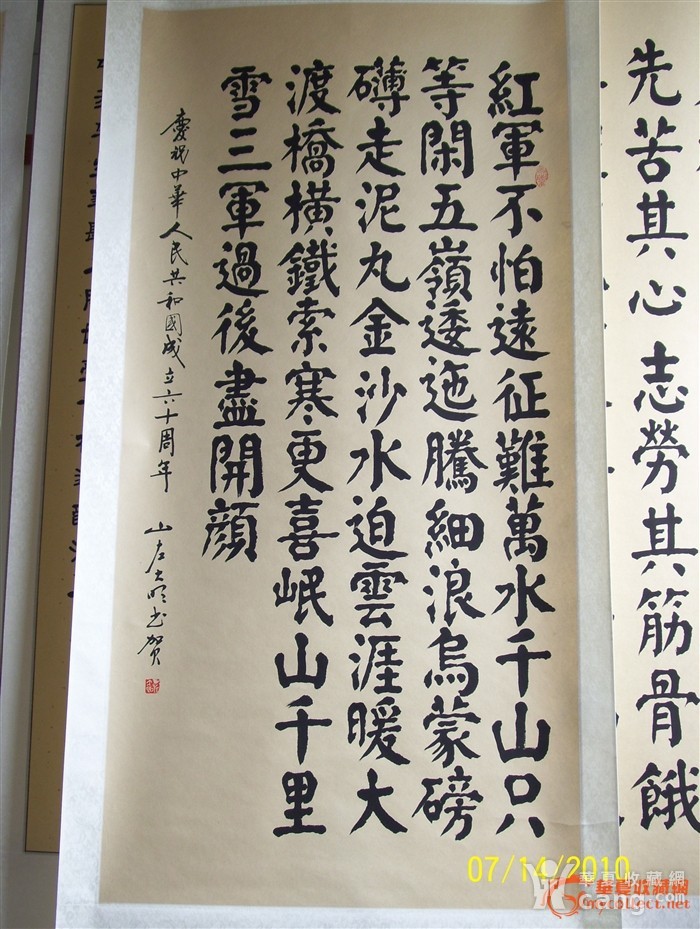 先苦其心志勞其筋骨餓
紅軍不怕遠征難萬水千山只
等閑五嶺逶迤騰細浪烏蒙磅
礴走泥丸金沙水迫雲涯暖大
渡橋橫鐵索寒更喜岷山千里
雪三軍過後盡開顏
慶祝中華人民共和國成立六十周年 山左大明书贺
07/14/2010
華夏收藏網
cang.com
華夏收藏網
mycollect.net